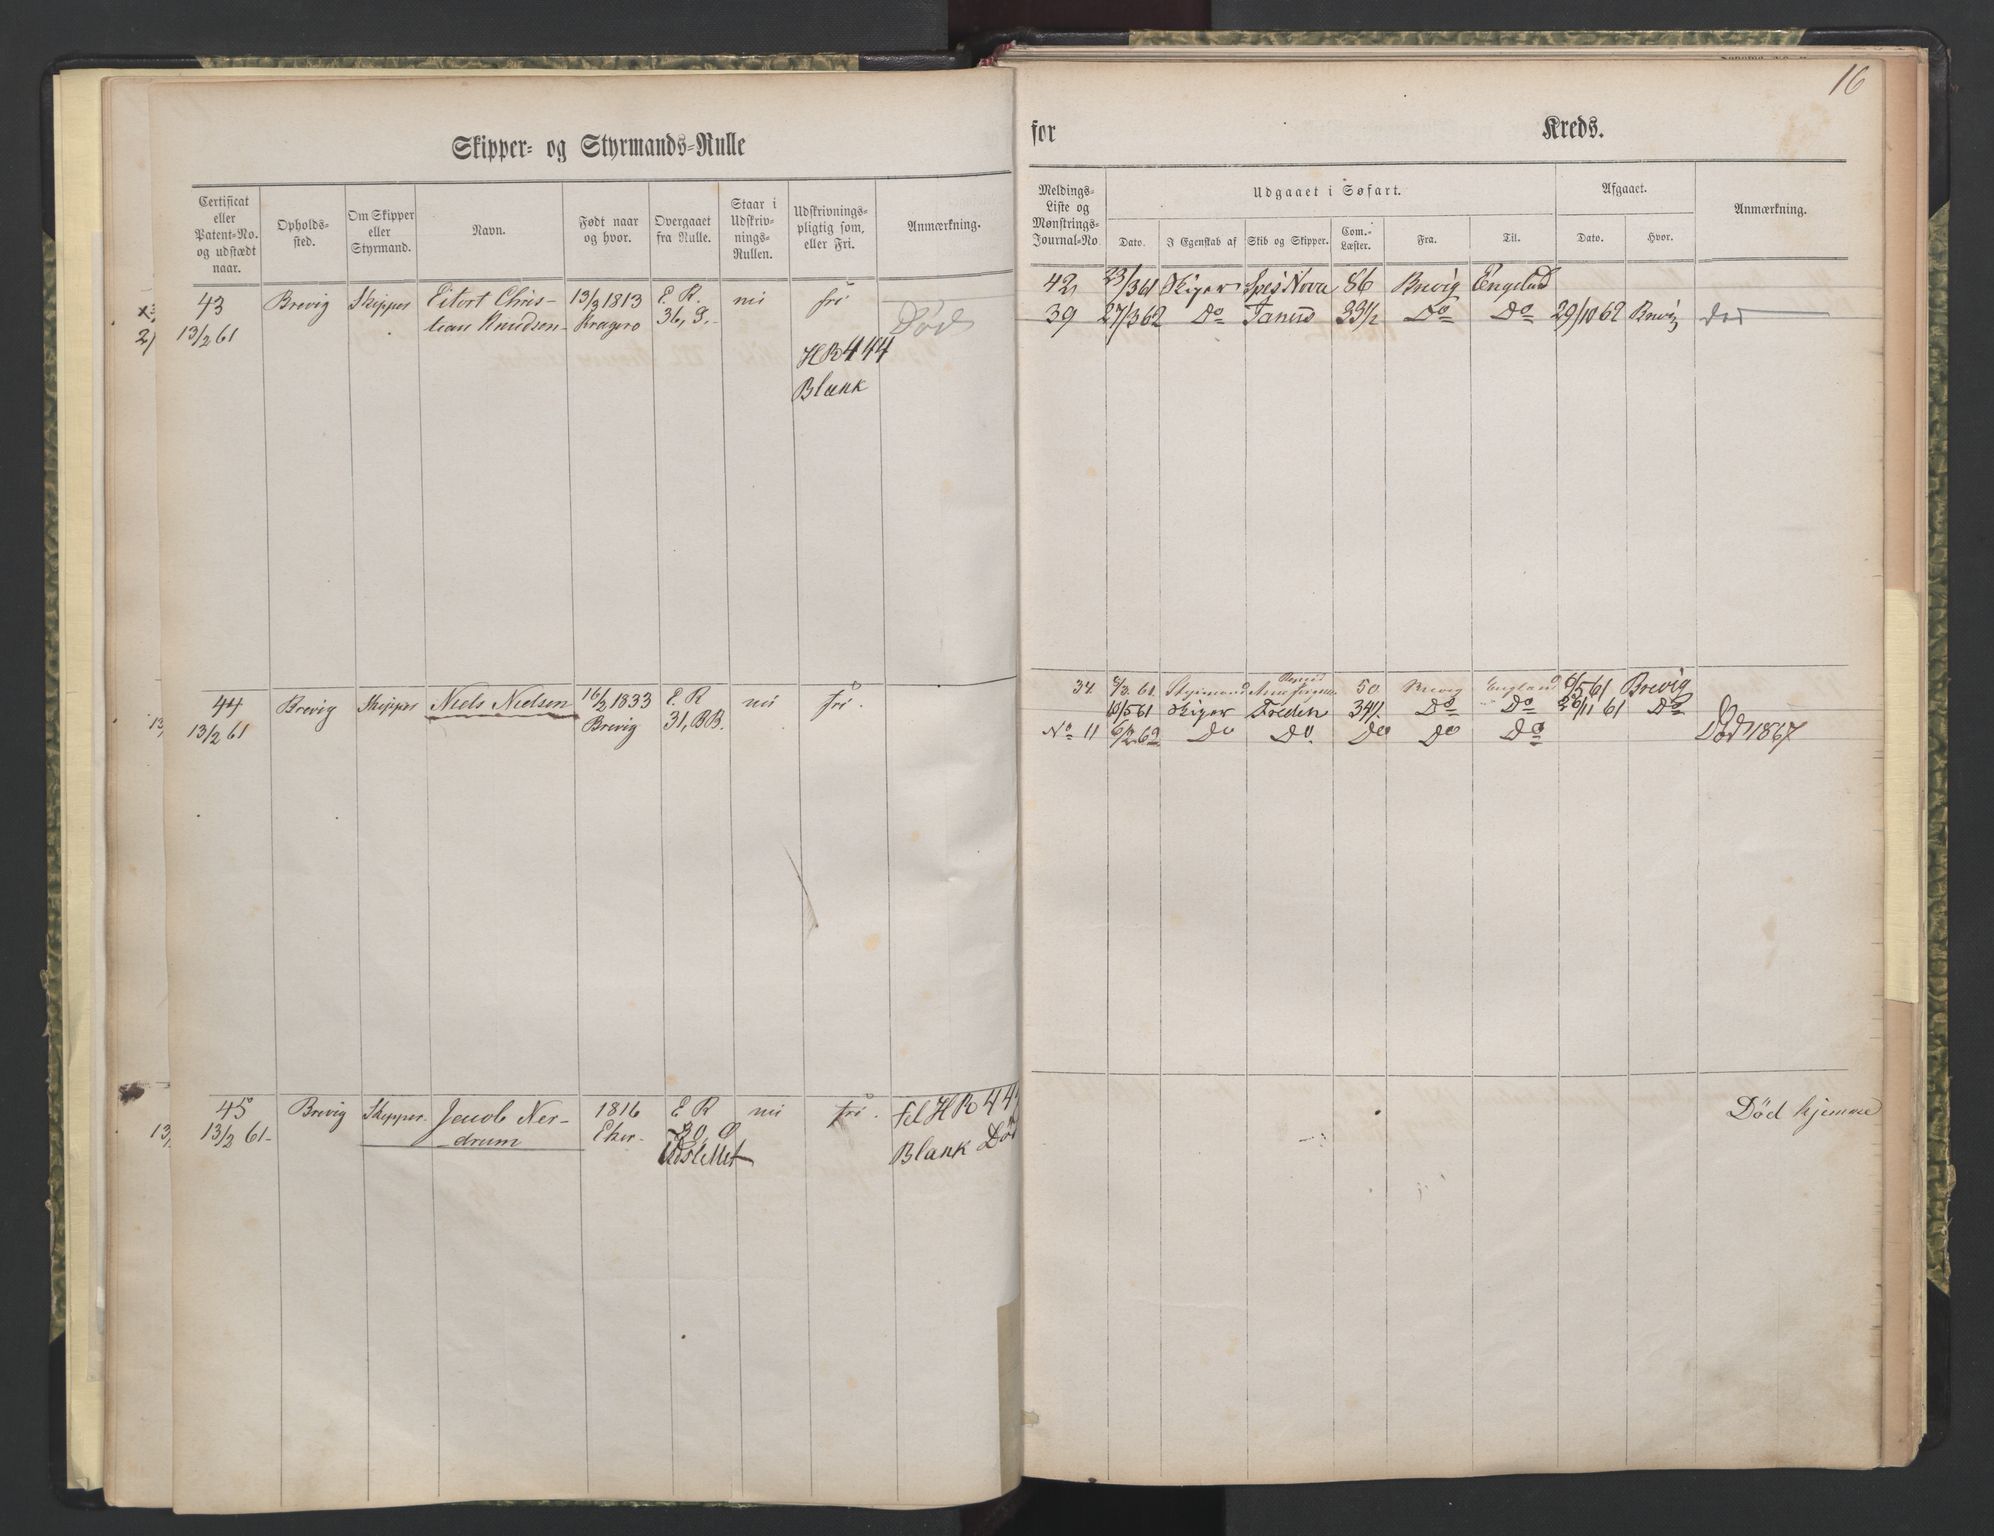 16
Skipper- og Styrmands-Rulle
for Kreds.
Certificat eller Patent-No. og udstædt naar.
Opholds-sted.
Om Skipper eller Styrmand.
Navn.
Født naar og hvor.
Overgaaet fra Rulle.
Staar i Udskriv-nings-Rullen.
Udskrivnings-pligtig som, eller Fri.
Anmærkning.
Meldings-Liste og Mønstrings-Journal-No.
Udgaaet i Søfart.
Dato.
I Egenskab af
Skib og Skipper.
Com.-Læster.
Fra.
Til.
Afgaaet.
Dato.
Hvor.
Anmærkning.
43 Brevig Skipper Eilert Chris- 13/3 1813 E. R. nei fri
13/2 61 tian Knudsen Kragerø 36, S. Død
HR 444
Blank
42 23/3 61 Skiper Spes Nova 86 Brevig England
39 27/3 62 Do 33 1/2 Do Do 29/10 62 Brevig Død
44 Brevig Skipper Niels Nielsen 16/2 1833 E. R nei fri.
13/2 61 Brevig 31, BB.
34 61 Styrmand 50 Brevig England 6/5 61 Brevig
10/5 61 Skiper Do Do 61 Do
No 11 6/2 62 Do Do. Do Do Do Død 1867
45 Brevig Skipper. Jacob Ner- 1816 E R nei fri.
13/2 61 drum Eker.
Udslettet
HR 44
Blank Død
Død hjemme